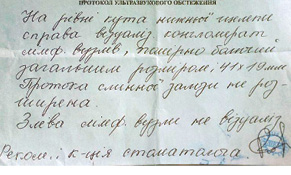 ПРОТОКОЛ УЛЬТРАЗВУКОВОГО ОБСТЕЖЕННЯ
На рівні кута нижньої щелепи
справа візуаліз. конгломерат
лімф. вузлів, помірно болючий
загальним розміром: 41х19мм
Протока слинної залози не роз-
ширена.
Зліва лімф. вузли не візуаліз.
Реком.: к-ція стоматолога